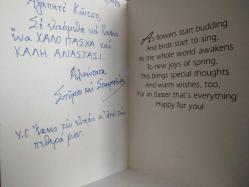 Αγαπητέ Κώστα,
Σε εύχομαι να έχεις
ΚΑΛΟ ΠΑΣΧΑ ΚΑΙ
ΚΑΛΗ ΑΝΑΣΤΑΣΙ.
Φιλικότατα
Σπύρος και
Υ.Γ. Έχεις
πεθερά μου.
As flowers start budding
And birds start to sing,
As the whole world awakens
To new joys of spring,
This brings special thoughts
And warm wishes, too,
For an Easter that's everything
Happy for you!